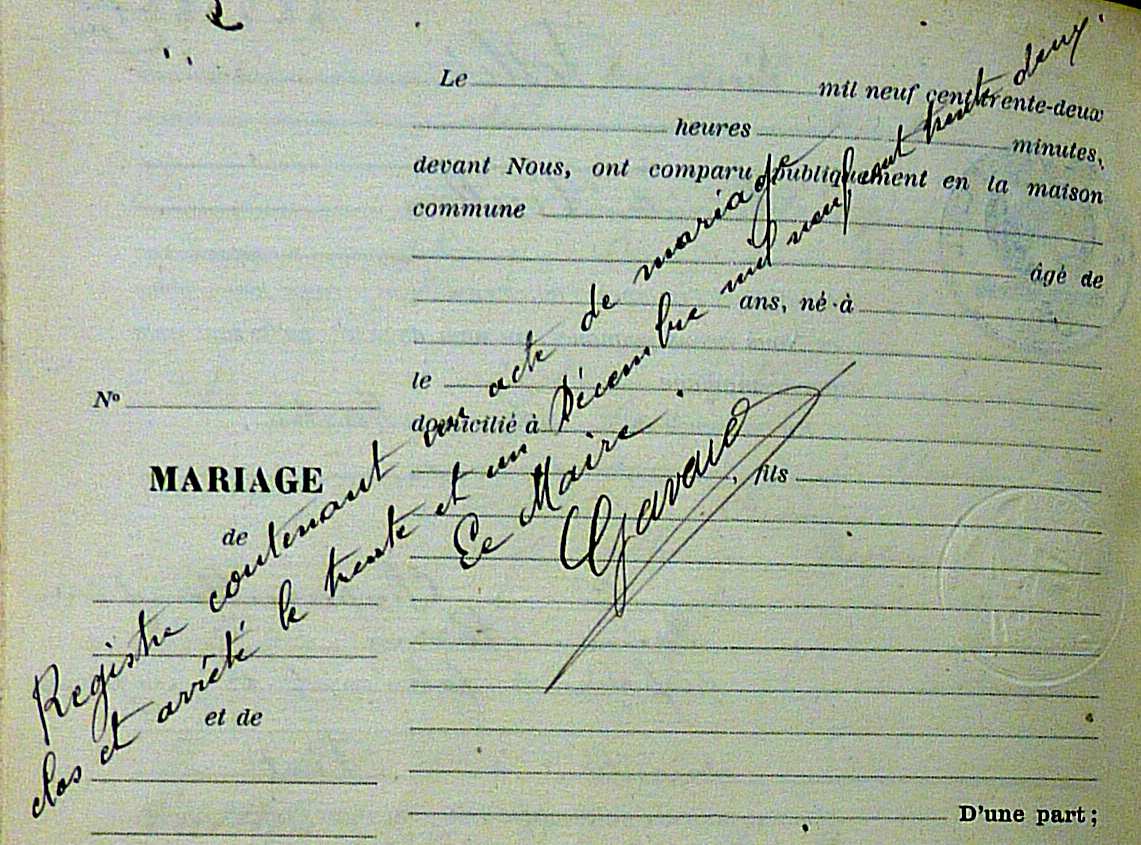 Le mil neuf cent trente-deux
heures minutes,
devant Nous, ont comparu publiquement en la maison
commune
âgé de
ans, né à
le
domicilié à
, fils
D'une part;
Nº
MARIAGE
de
et de
Registre contenant un acte de mariage
clos et arrêté le trente et un Décembre mil neuf cent trente deux
Le Maire.